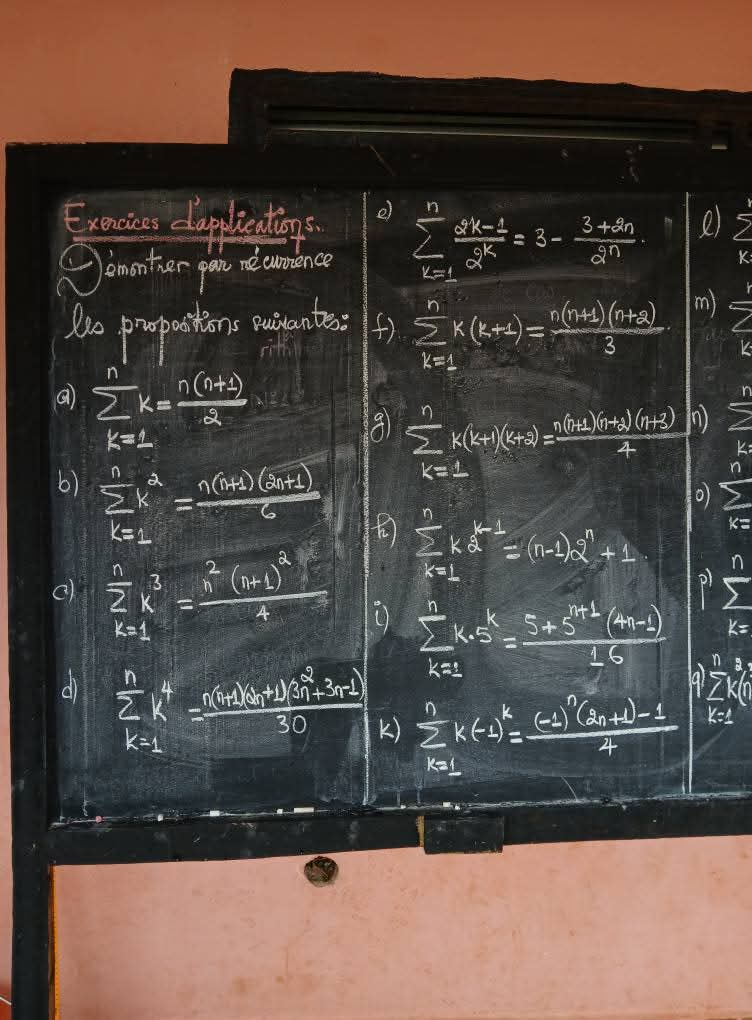 Exercices d'applications.
Démontrer par récurrence
les propositions suivantes:
a) \sum_{k=1}^{n} k = \frac{n(n+1)}{2}
b) \sum_{k=1}^{n} k^2 = \frac{n(n+1)(2n+1)}{6}
c) \sum_{k=1}^{n} k^3 = \frac{n^2(n+1)^2}{4}
d) \sum_{k=1}^{n} k^4 = \frac{n(n+1)(2n+1)(3n^2+3n-1)}{30}
e) \sum_{k=1}^{n} \frac{2k-1}{2^k} = 3 - \frac{3+2n}{2^n}.
f) \sum_{k=1}^{n} k(k+1) = \frac{n(n+1)(n+2)}{3}.
g) \sum_{k=1}^{n} k(k+1)(k+2) = \frac{n(n+1)(n+2)(n+3)}{4}
h) \sum_{k=1}^{n} k 2^{k-1} = (n-1)2^n + 1.
i) \sum_{k=1}^{n} k \cdot 5^k = \frac{5+5^{n+1}(4n-1)}{16}
k) \sum_{k=1}^{n} k(-1)^k = \frac{(-1)^n(2n+1)-1}{4}
l)
m)
n)
o)
p)
q) \sum_{k=1}^{n} k^2(n